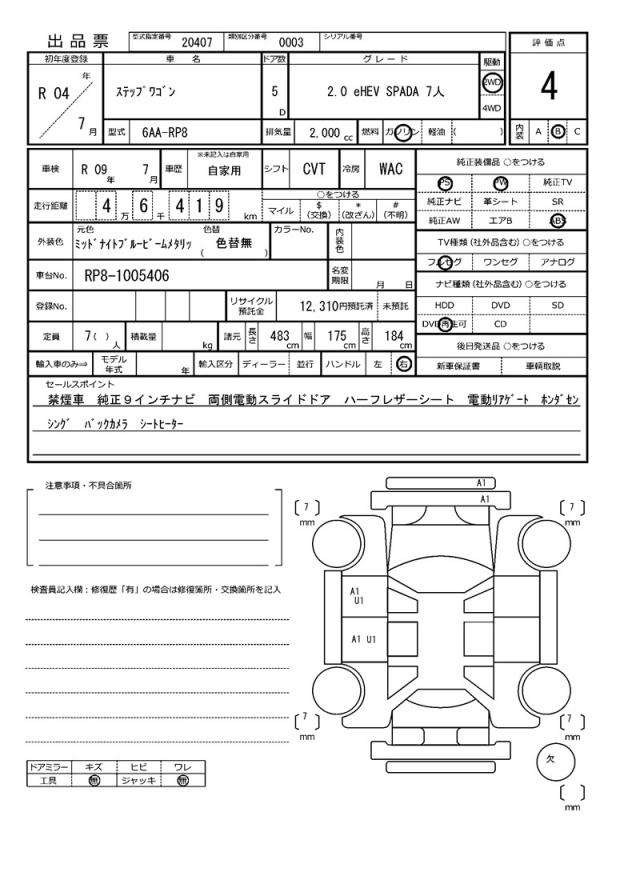 出品票 型式指定番号 20407 類別区分番号 0003 シリアル番号
初年度登録 車名 ドア数 グレード 駆動 評価点
R 04 年 7 月 ステップワゴン 5 D 2.0 eHEV SPADA 7人 2WD 4WD 4
型式 6AA-RP8 排気量 2,000 cc 燃料 ガソリン 軽油 ( ) 内装 A B C
車検 R 09 年 7 月 車歴 ※未記入は自家用 自家用 シフト CVT 冷房 WAC 純正装備品 ○をつける
PS PW 純正TV
走行距離 4 万 6 千 4 1 9 km ○をつける マイル $ (交換) * (改ざん) # (不明) 純正ナビ 革シート SR
純正AW エアB ABS
外装色 元色 ミッドナイトブルービームメタリッ 色替 ( 色替無 ) カラーNo. 内装色 TV種類 (社外品含む) ○をつける
フルセグ ワンセグ アナログ
車台No. RP8-1005406 名変期限 月 日 ナビ種類 (社外品含む) ○をつける
登録No. リサイクル預託金 12,310円預託済 未預託 HDD DVD SD
DVD再生可 CD
定員 7 ( ) 人 積載量 kg 諸元 長さ 483 cm 幅 175 cm 高さ 184 cm 後日発送品 ○をつける
輸入車のみ⇒ モデル年式 年 輸入区分 ディーラー 並行 ハンドル 左 右 新車保証書 車輌取説
セールスポイント
禁煙車 純正9インチナビ 両側電動スライドドア ハーフレザーシート 電動リアゲート ホンダセン
シング バックカメラ シートヒーター
注意事項・不具合箇所
A1
A1
[ 7 ] mm [ 7 ] mm
検査員記入欄:修復歴「有」の場合は修復箇所・交換箇所を記入
A1
U1
A1 U1
[ 7 ] mm [ 7 ] mm
欠
ドアミラー キズ ヒビ ワレ
工具 無 ジャッキ 無
[ ] mm